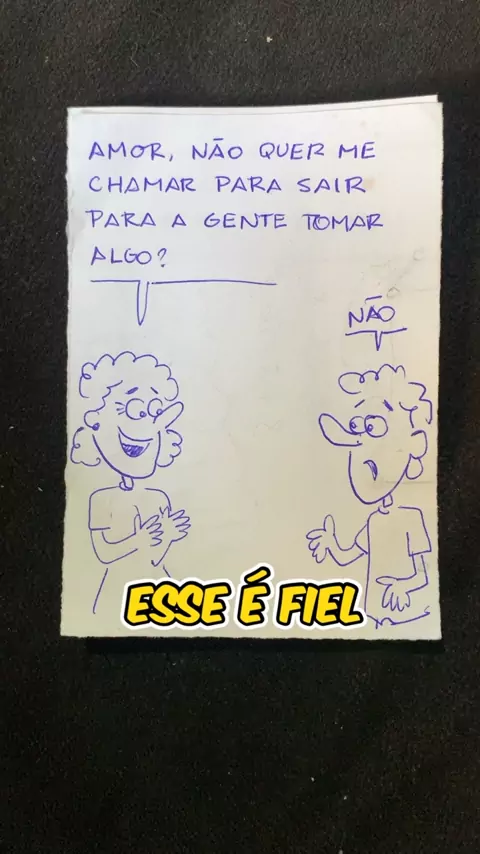 AMOR, NÃO QUER ME
CHAMAR PARA SAIR
PARA A GENTE TOMAR
ALGO?
NÃO
ESSE É FIEL